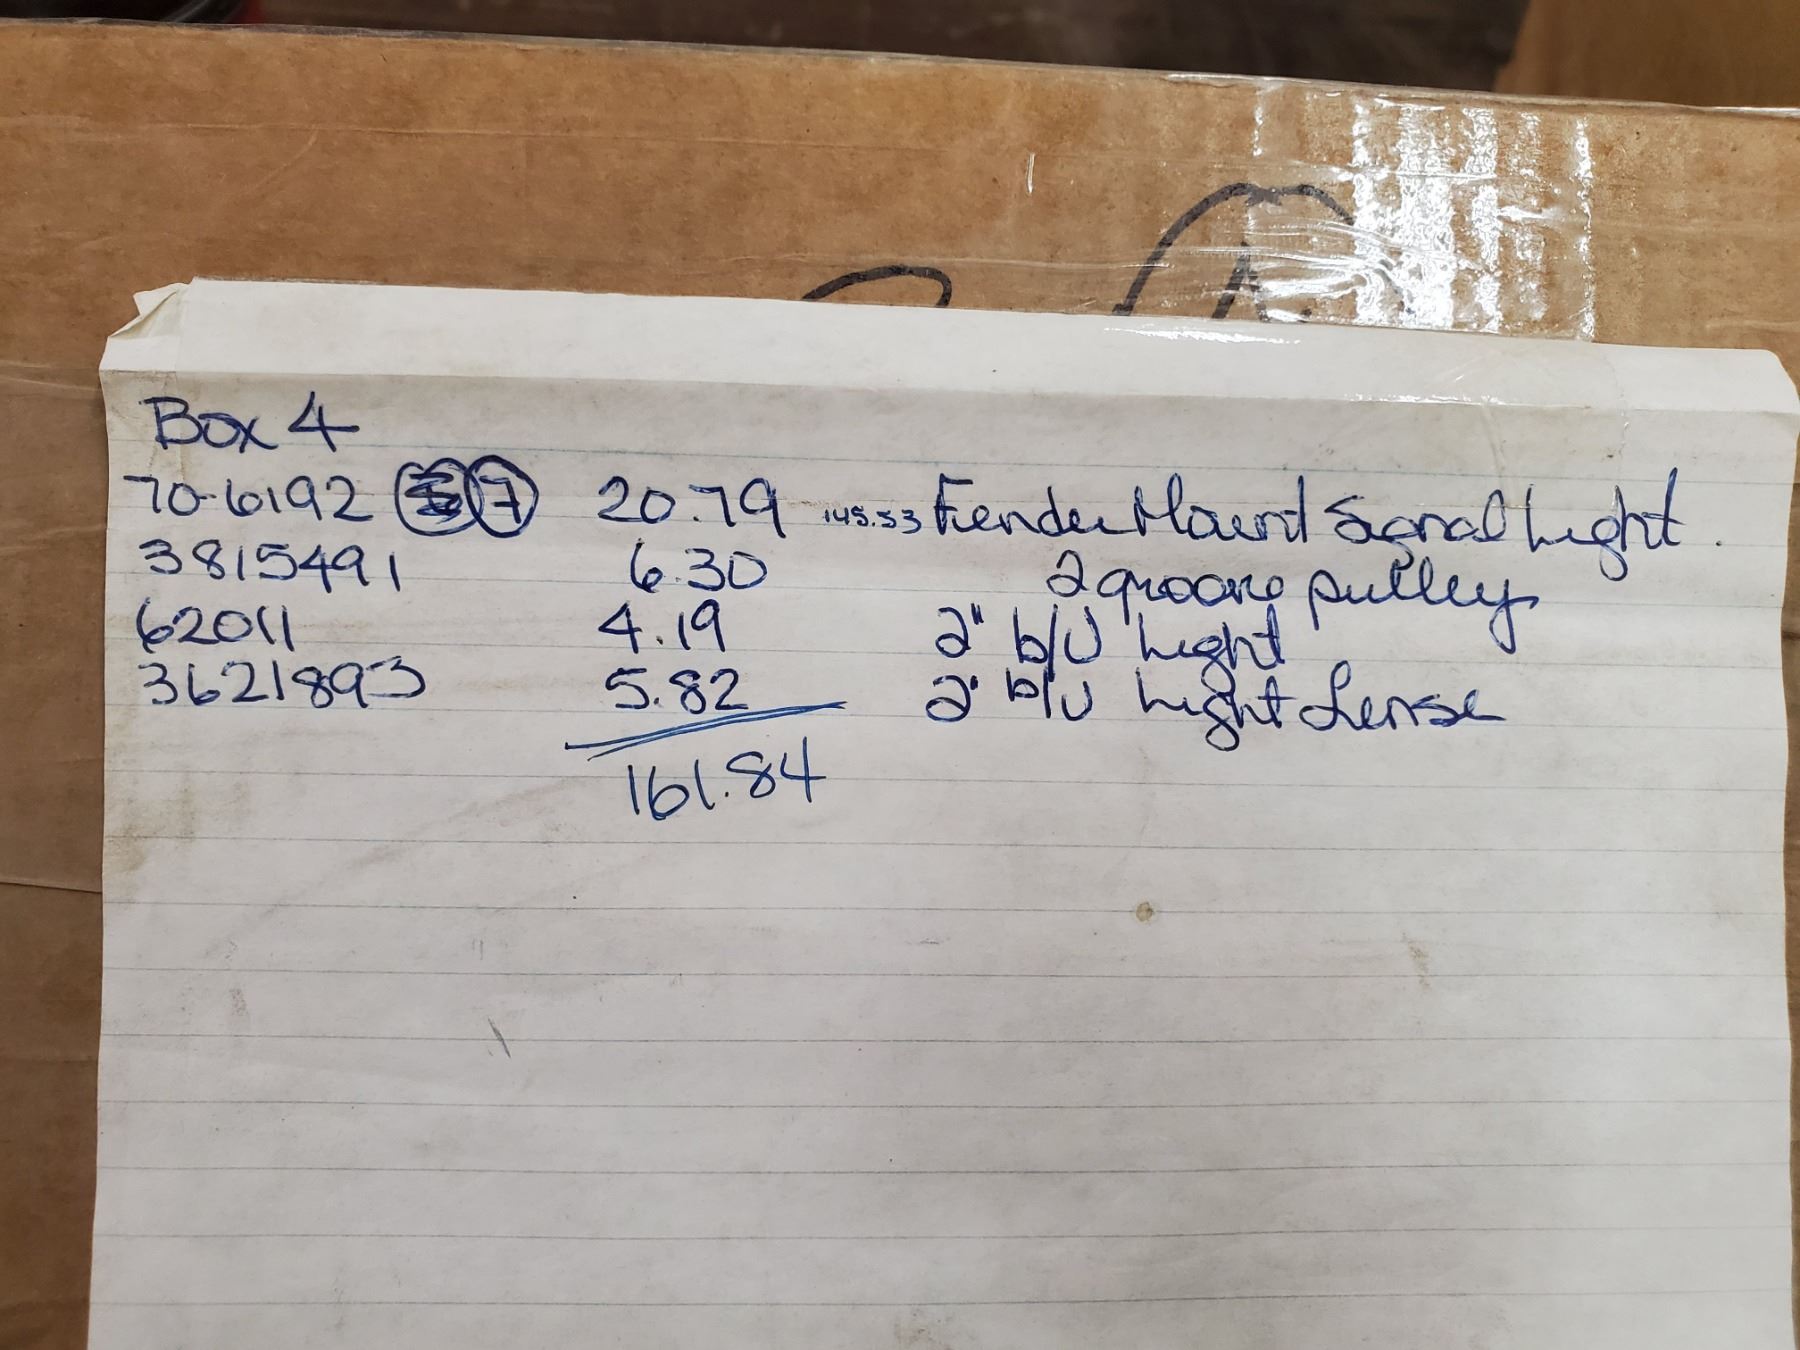 Box 4
70-6192 7 20.79 145.53 Fender Mount Signal Light.
3815491 6.30 2 groove pulley
62011 4.19 2" b/U Light
3621893 5.82 2" b/U Light Lense
161.84